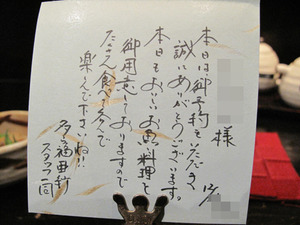 様
本日は、御予約をいただき
誠にありがとうございます。
本日もおいしいお魚料理を
御用意しておりますので
たくさん食べて飲んで
楽しんで下さいね!!
スタッフ一同
12/